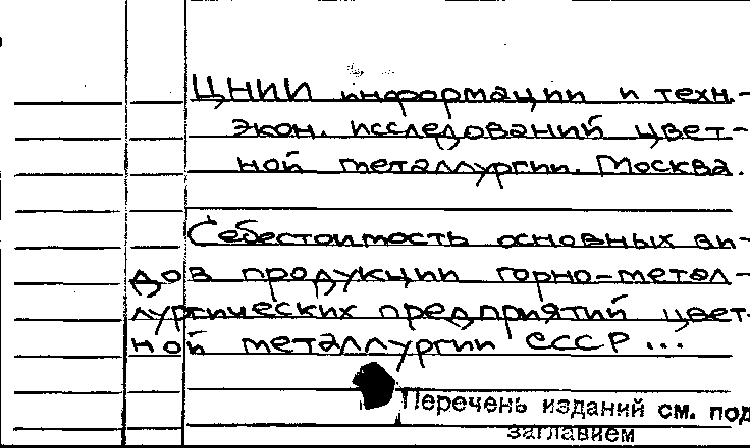 ЦНИИ информации и техн.-
экон. исследований цвет-
ной металлургии. Москва.
Себестоимость основных ви-
дов продукции горно-метал-
лургических предприятий цвет-
ной металлургии СССР ...
Перечень изданий см. под
заглавием